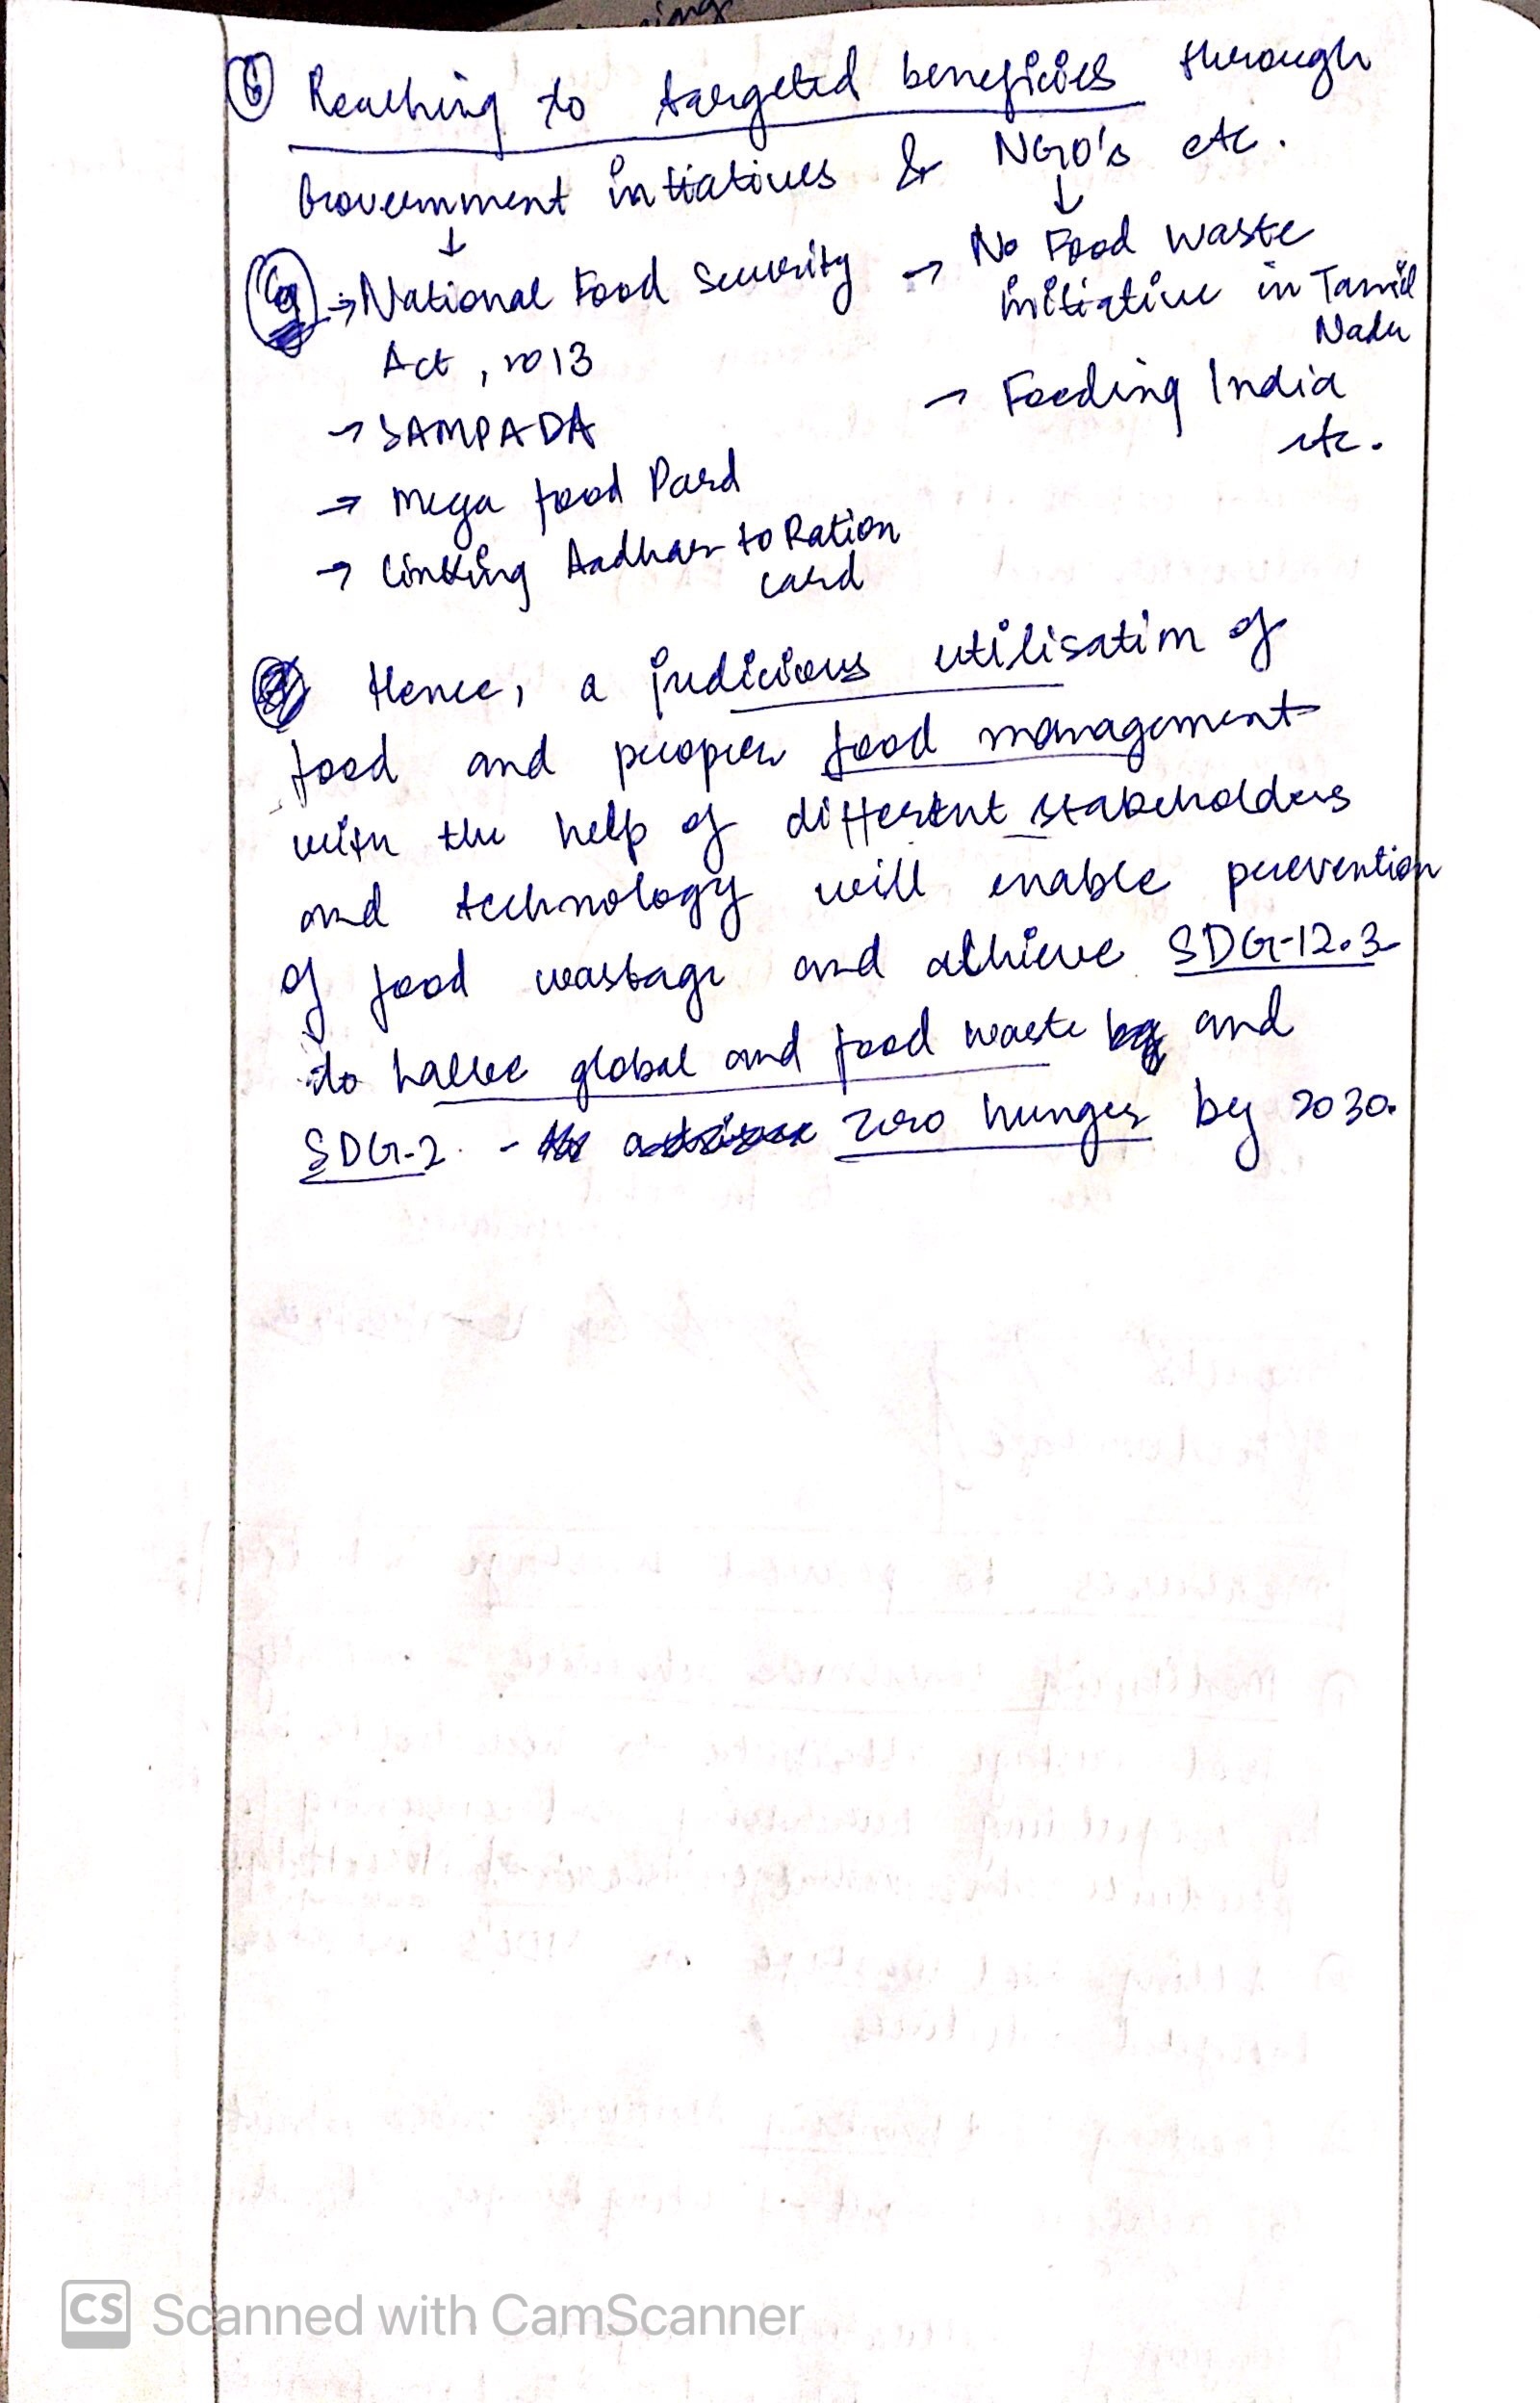 ⑥ Reaching to targeted beneficies through
Government intiatives & NGO's etc.
↓ ↓
Eg → National Food Security
Act, 2013
→ SAMPADA
→ Mega food Pard
→ Linking Aadhaar to Ration
card
→ No Food Waste
initiative in Tamil
Nadu
→ Feeding India
etc.
Hence, a judicious utilisation of
food and proper food management
with the help of different stakeholders
and technology will enable prevention
of food wastage and achieve SDG-12.3
to halve global and food waste and
SDG-2 - zero hunger by 2030.
CS Scanned with CamScanner